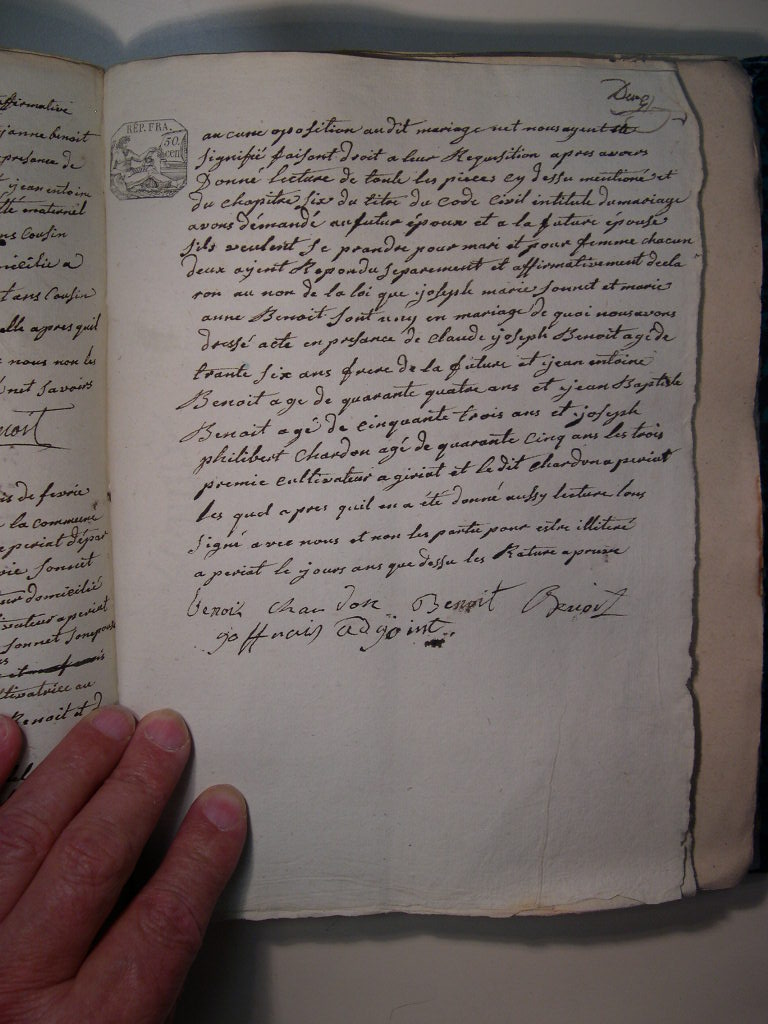 affirmative
janne benoit
presance de
jean entoine
maternel
ns Cousin
micilié a
t ans Cousin
elle apres quil
c nous non les
net savoirs
enoit
is de fevrie
e la commune
e periat depar
rie sonnet
eur domicilié
tivateur a periat
sonnet
ltivatrice au
Benoit et d
RÉP. FRA.
50
cent
aucune oposition audit mariage net nous ayent ete
signifié faisont droit a leur Requsition apres avoirs
Donné lecture de toute les pieces cy dessu mentioné et
du chapitre six du titre du Code Civil intitulé du mariage
avons démandé au futur époux et a la future épouse
sils veulent se prandre pour mari et pour femme chacun
deux ayent Repondu separement et affirmativement decla
ron au non de la loi que joseph marie sonnet et marie
anne Benoit sont uny en mariage de quoi nous avons
dressé acte en presance de Claude joseph Benoit agé de
trante six ans frere de la future et jean entoine
Benoit age de quarante quatre ans et jean Baptiste
Benoit agé de cinquante trois ans et joseph
philibert Chardon agé de quarante cinq ans les trois
premie cultivateur a giriat et le dit Chardon a periat
les quel apres quil en a été donné aussy lecture lons
signé avec nous et non les partie pour estre illiteré
a periat le jours ans que dessu les Rature aprouve
benoit chardon Benoit Benoit
goffnais adjoint